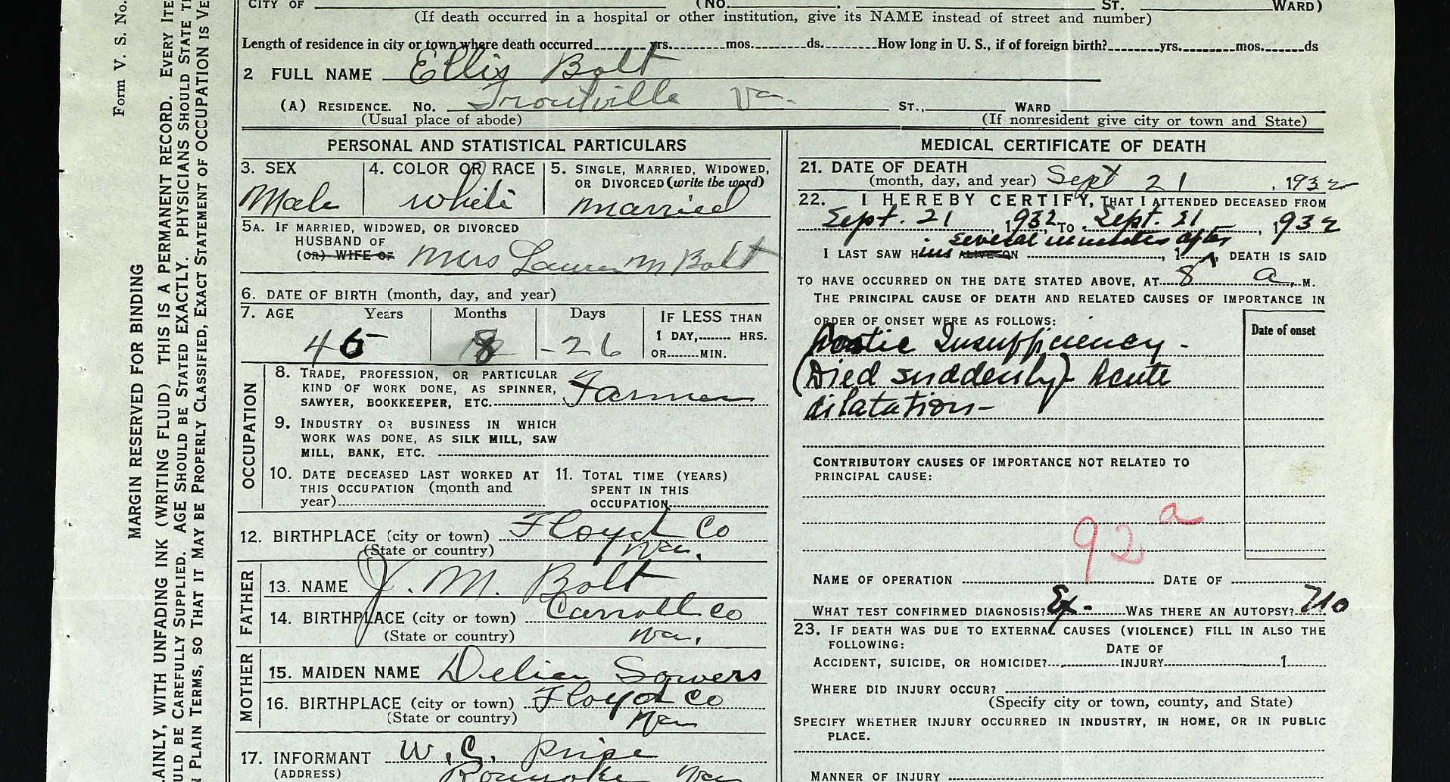 CITY OF (NO. ST. WARD)
(If death occurred in a hospital or other institution, give its NAME instead of street and number)
Length of residence in city or town where death occurred yrs. mos. ds. How long in U. S., if of foreign birth? yrs. mos. ds
2 FULL NAME Ellis Bolt
(A) RESIDENCE. No. Troutville Va. ST., WARD
(Usual place of abode) (If nonresident give city or town and State)
PERSONAL AND STATISTICAL PARTICULARS
3. SEX Male
4. COLOR OR RACE white
5. SINGLE, MARRIED, WIDOWED, OR DIVORCED (write the word) Married
5A. IF MARRIED, WIDOWED, OR DIVORCED
HUSBAND OF
(OR) WIFE OF Mrs Laura M Bolt
6. DATE OF BIRTH (month, day, and year)
7. AGE Years Months Days IF LESS THAN
1 DAY, HRS.
OR MIN.
45 8 - 26
OCCUPATION
8. TRADE, PROFESSION, OR PARTICULAR
KIND OF WORK DONE, AS SPINNER,
SAWYER, BOOKKEEPER, ETC. Farmer
9. INDUSTRY OR BUSINESS IN WHICH
WORK WAS DONE, AS SILK MILL, SAW
MILL, BANK, ETC.
10. DATE DECEASED LAST WORKED AT
THIS OCCUPATION (month and
year)
11. TOTAL TIME (YEARS)
SPENT IN THIS
OCCUPATION
12. BIRTHPLACE (city or town) Floyd Co
(State or country) Va.
FATHER
13. NAME J. M. Bolt
14. BIRTHPLACE (city or town) Carroll Co
(State or country) Va.
MOTHER
15. MAIDEN NAME Delia Sowers
16. BIRTHPLACE (city or town) Floyd Co
(State or country) Va
17. INFORMANT W. C. Price
(ADDRESS) Roanoke Va
MEDICAL CERTIFICATE OF DEATH
21. DATE OF DEATH
(month, day, and year) Sept 21, 1932
22. I HEREBY CERTIFY, THAT I ATTENDED DECEASED FROM
Sept. 21, 1932, TO Sept. 21, 1932
several minutes after
I LAST SAW Him ALIVE ON , 1 DEATH IS SAID
TO HAVE OCCURRED ON THE DATE STATED ABOVE, AT 8 a. M.
THE PRINCIPAL CAUSE OF DEATH AND RELATED CAUSES OF IMPORTANCE IN
ORDER OF ONSET WERE AS FOLLOWS:
Date of onset
Aortic Insufficiency -
(Died suddenly) Acute
dilatation -
CONTRIBUTORY CAUSES OF IMPORTANCE NOT RELATED TO
PRINCIPAL CAUSE:
92 a
NAME OF OPERATION DATE OF
WHAT TEST CONFIRMED DIAGNOSIS? Ex - WAS THERE AN AUTOPSY? no
23. IF DEATH WAS DUE TO EXTERNAL CAUSES (VIOLENCE) FILL IN ALSO THE
FOLLOWING:
ACCIDENT, SUICIDE, OR HOMICIDE? DATE OF INJURY 1
WHERE DID INJURY OCCUR?
(Specify city or town, county, and State)
SPECIFY WHETHER INJURY OCCURRED IN INDUSTRY, IN HOME, OR IN PUBLIC
PLACE.
MANNER OF INJURY
Form V. S. No.
MARGIN RESERVED FOR BINDING
AINLY, WITH UNFADING INK (WRITING FLUID) THIS IS A PERMANENT RECORD. EVERY ITE
ULD BE CAREFULLY SUPPLIED. AGE SHOULD BE STATED EXACTLY. PHYSICIANS SHOULD STATE
N PLAIN TERMS, SO THAT IT MAY BE PROPERLY CLASSIFIED, EXACT STATEMENT OF OCCUPATION IS VE